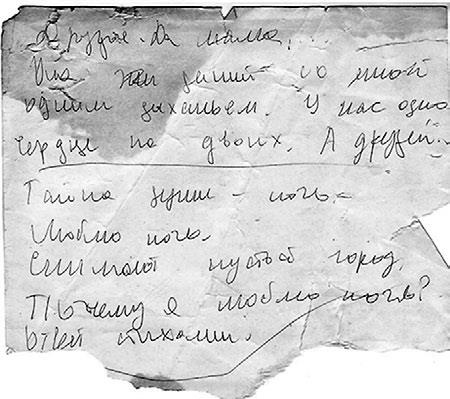 Друзья. Да мама...
Она дышит со мной
одним дыханьем. У нас одно
сердце на двоих. А друзей...
Тайна души - ночь.
Люблю ночь.
пустой город.
Почему я люблю ночь?
Ответ стихами.